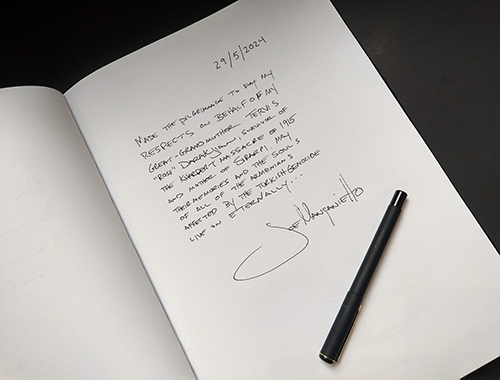 29/5/2024
MADE THE PILGRIMAGE TO PAY MY
RESPECTS ON BEHALF OF MY
GREAT-GRANDMOTHER TERVIS
"ROSE" DARAKJIAN, SURVIVOR OF
THE KHARPERT MASSACRE OF 1915
AND MOTHER OF SIRARPI. MAY
THEIR MEMORIES AND THE SOULS
OF ALL OF THE ARMENIANS
AFFECTED BY THE TURKISH GENOCIDE
LIVE ON ETERNALLY...
JOE MANGANIELLO